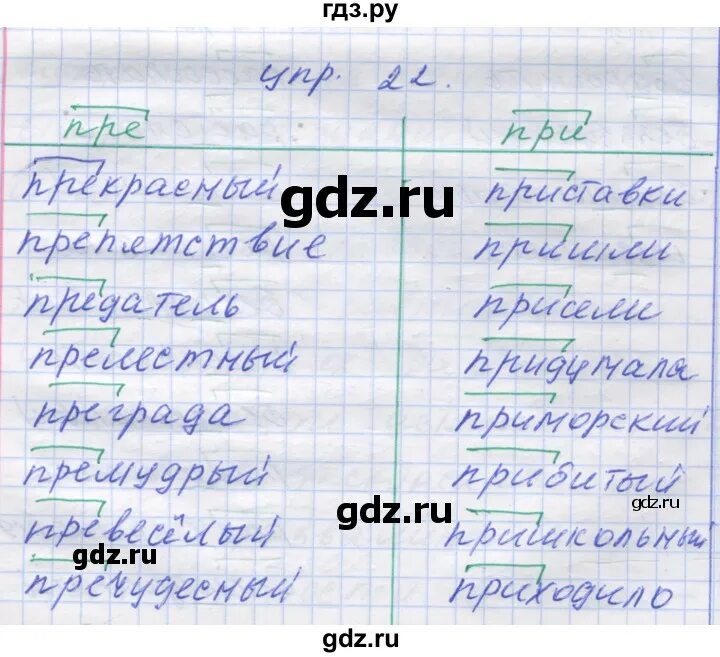 гдз.ру
упр. 22.
пре при
прекрасный приставки
препятствие пришли
предатель присели
прелестный придумала
преграда приморский
премудрый прибитый
превесёлый пришкольный
пречудесный приходило
gdz.ru
gdz.ru
gdz.ru
gdz.ru
gdz.ru